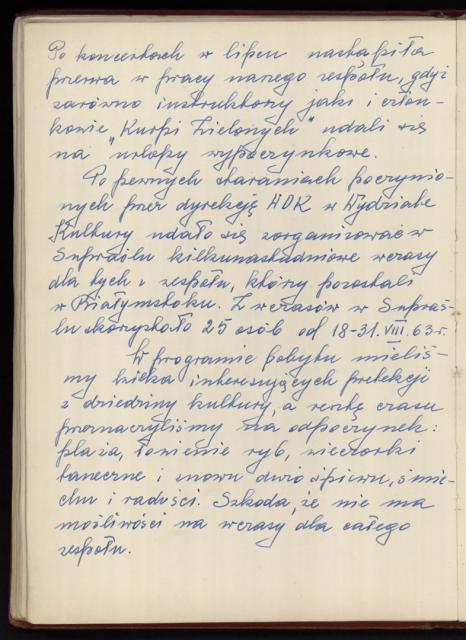 Po koncertach w lipcu nastąpiła
przerwa w pracy naszego zespołu, gdyż
zarówno instruktorzy jak i człon-
kowie "Kurpi Zielonych" udali się
na urlopy wypoczynkowe.
Po pewnych staraniach poczynio-
nych przez dyrekcję WDK w Wydziale
Kultury udało się zorganizować w
Supraślu kilkunastodniowe wczasy
dla tych z zespołu, który pozostali
w Białymstoku. Z wczasów w Supraś-
lu skorzystało 25 osób od 18-31.VIII.63r.
W programie pobytu mieliś-
my kilka interesujących prelekcji
z dziedziny kultury, a resztę czasu
przeznaczyliśmy na odpoczynek:
plaża, łowienie ryb, wieczorki
taneczne i znowu dużo śpiewu, śmie-
chu i radości. Szkoda, że nie ma
możliwości na wczasy dla całego
zespołu.